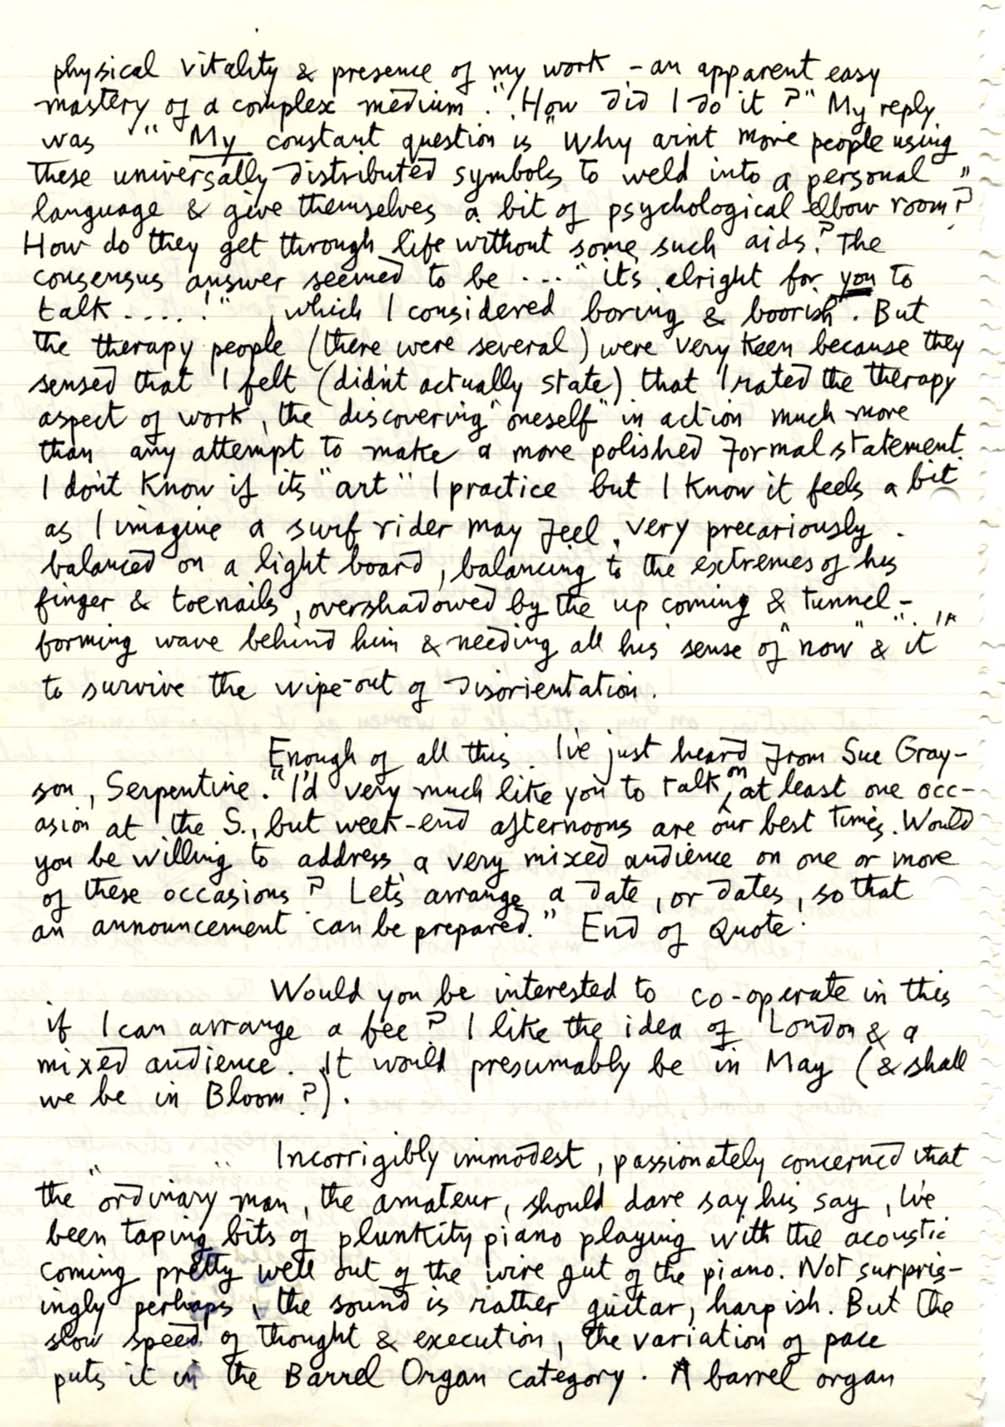 physical vitality & presence of my work - an apparent easy
mastery of a complex medium." "How did I do it?" My reply
was "" My constant question is "Why arint more people using
these universally distributed symbols to weld into a personal
language & give themselves a bit of psychological elbow room?"
How do they get through life without some such aids? The
consensus answer seemed to be ... "its alright for you to
talk ....!" , which I considered boring & boorish. But
the therapy people (there were several) were very keen because they
sensed that I felt (didn't actually state) that I rated the therapy
aspect of work, the discovering "oneself" in action much more
than any attempt to make a more polished formal statement.
I don't know if its "art" I practice but I know it feels a bit
as I imagine a surf rider may feel, very precariously
balanced on a light board, balancing to the extremes of his
finger & toenails, overshadowed by the up coming & tunnel-
forming wave behind him & needing all his sense of "now" & "it"
to survive the wipe-out of disorientation.
Enough of all this. I've just heard from Sue Gray-
son, Serpentine. "I'd very much like you to talk, on at least one occ-
asion at the S., but week-end afternoons are our best times. Would
you be willing to address a very mixed audience on one or more
of these occasions? Let's arrange a date, or dates, so that
an announcement can be prepared." End of Quote.
Would you be interested to co-operate in this
if I can arrange a fee? I like the idea of London & a
mixed audience. It would presumably be in May (& shall
we be in Bloom?).
Incorrigibly immodest, passionately concerned that
the "ordinary" man, the amateur, should dare say his say, I've
been taping bits of plunkity piano playing with the acoustic
coming pretty well out of the wire gut of the piano. Not surpris-
ingly perhaps, the sound is rather guitar, harpish. But the
slow speed of thought & execution, the variation of pace
puts it in the Barrel Organ category. A barrel organ